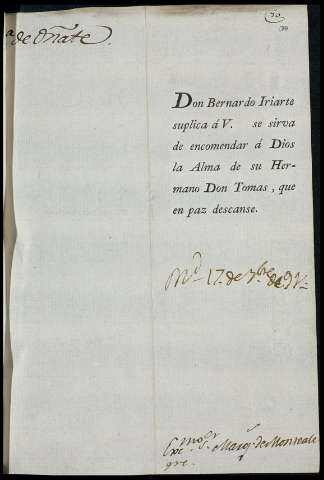 de Oñate.
Don Bernardo Iriarte
suplica á V. se sirva
de encomendar á Dios
la Alma de su Her-
mano Don Tomas, que
en paz descanse.
Md. 17. de 7bre de 91
Exmo. Sr. Marq. de Monreale